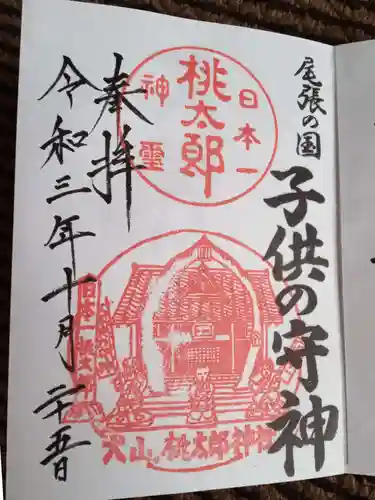 尾張の国
子供の守神
日本一
桃太郎
神霊
奉拝
令和三年十月二十五日
日本一桃太郎
犬山 桃太郎神社